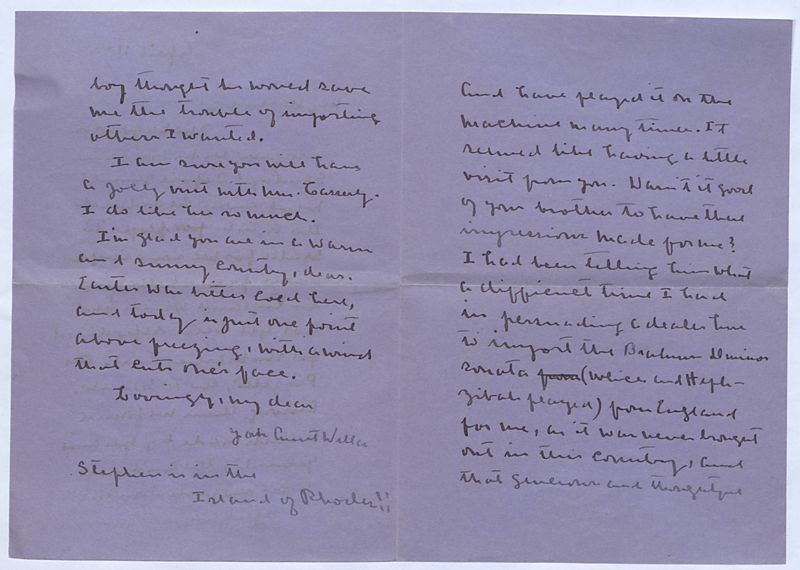 boy thought he would save
me the trouble of importing
others I wanted.
I am sure you will have
a jolly visit with Mrs. Casserly.
I do like her so much.
I'm glad you are in a warm
and sunny country, dear.
Easter was bitter cold here,
and today is just one point
above freezing, with a wind
that cuts one's face.
Lovingly, my dear
Aunt Willa
Stephen is in the
Island of Rhodes!!
and have played it on the
machine many times. It
seemed like having a little
visit from you. Wasn't it good
of your brother to have these
impressions made for me?
I had been telling him what
a difficult time I had
in persuading a dealer here
to import the Brahms D minor
sonata from (which he and Heph-
zibah played) from England
for me, as it was never brought
out in this country, and
that generous and thoughtful